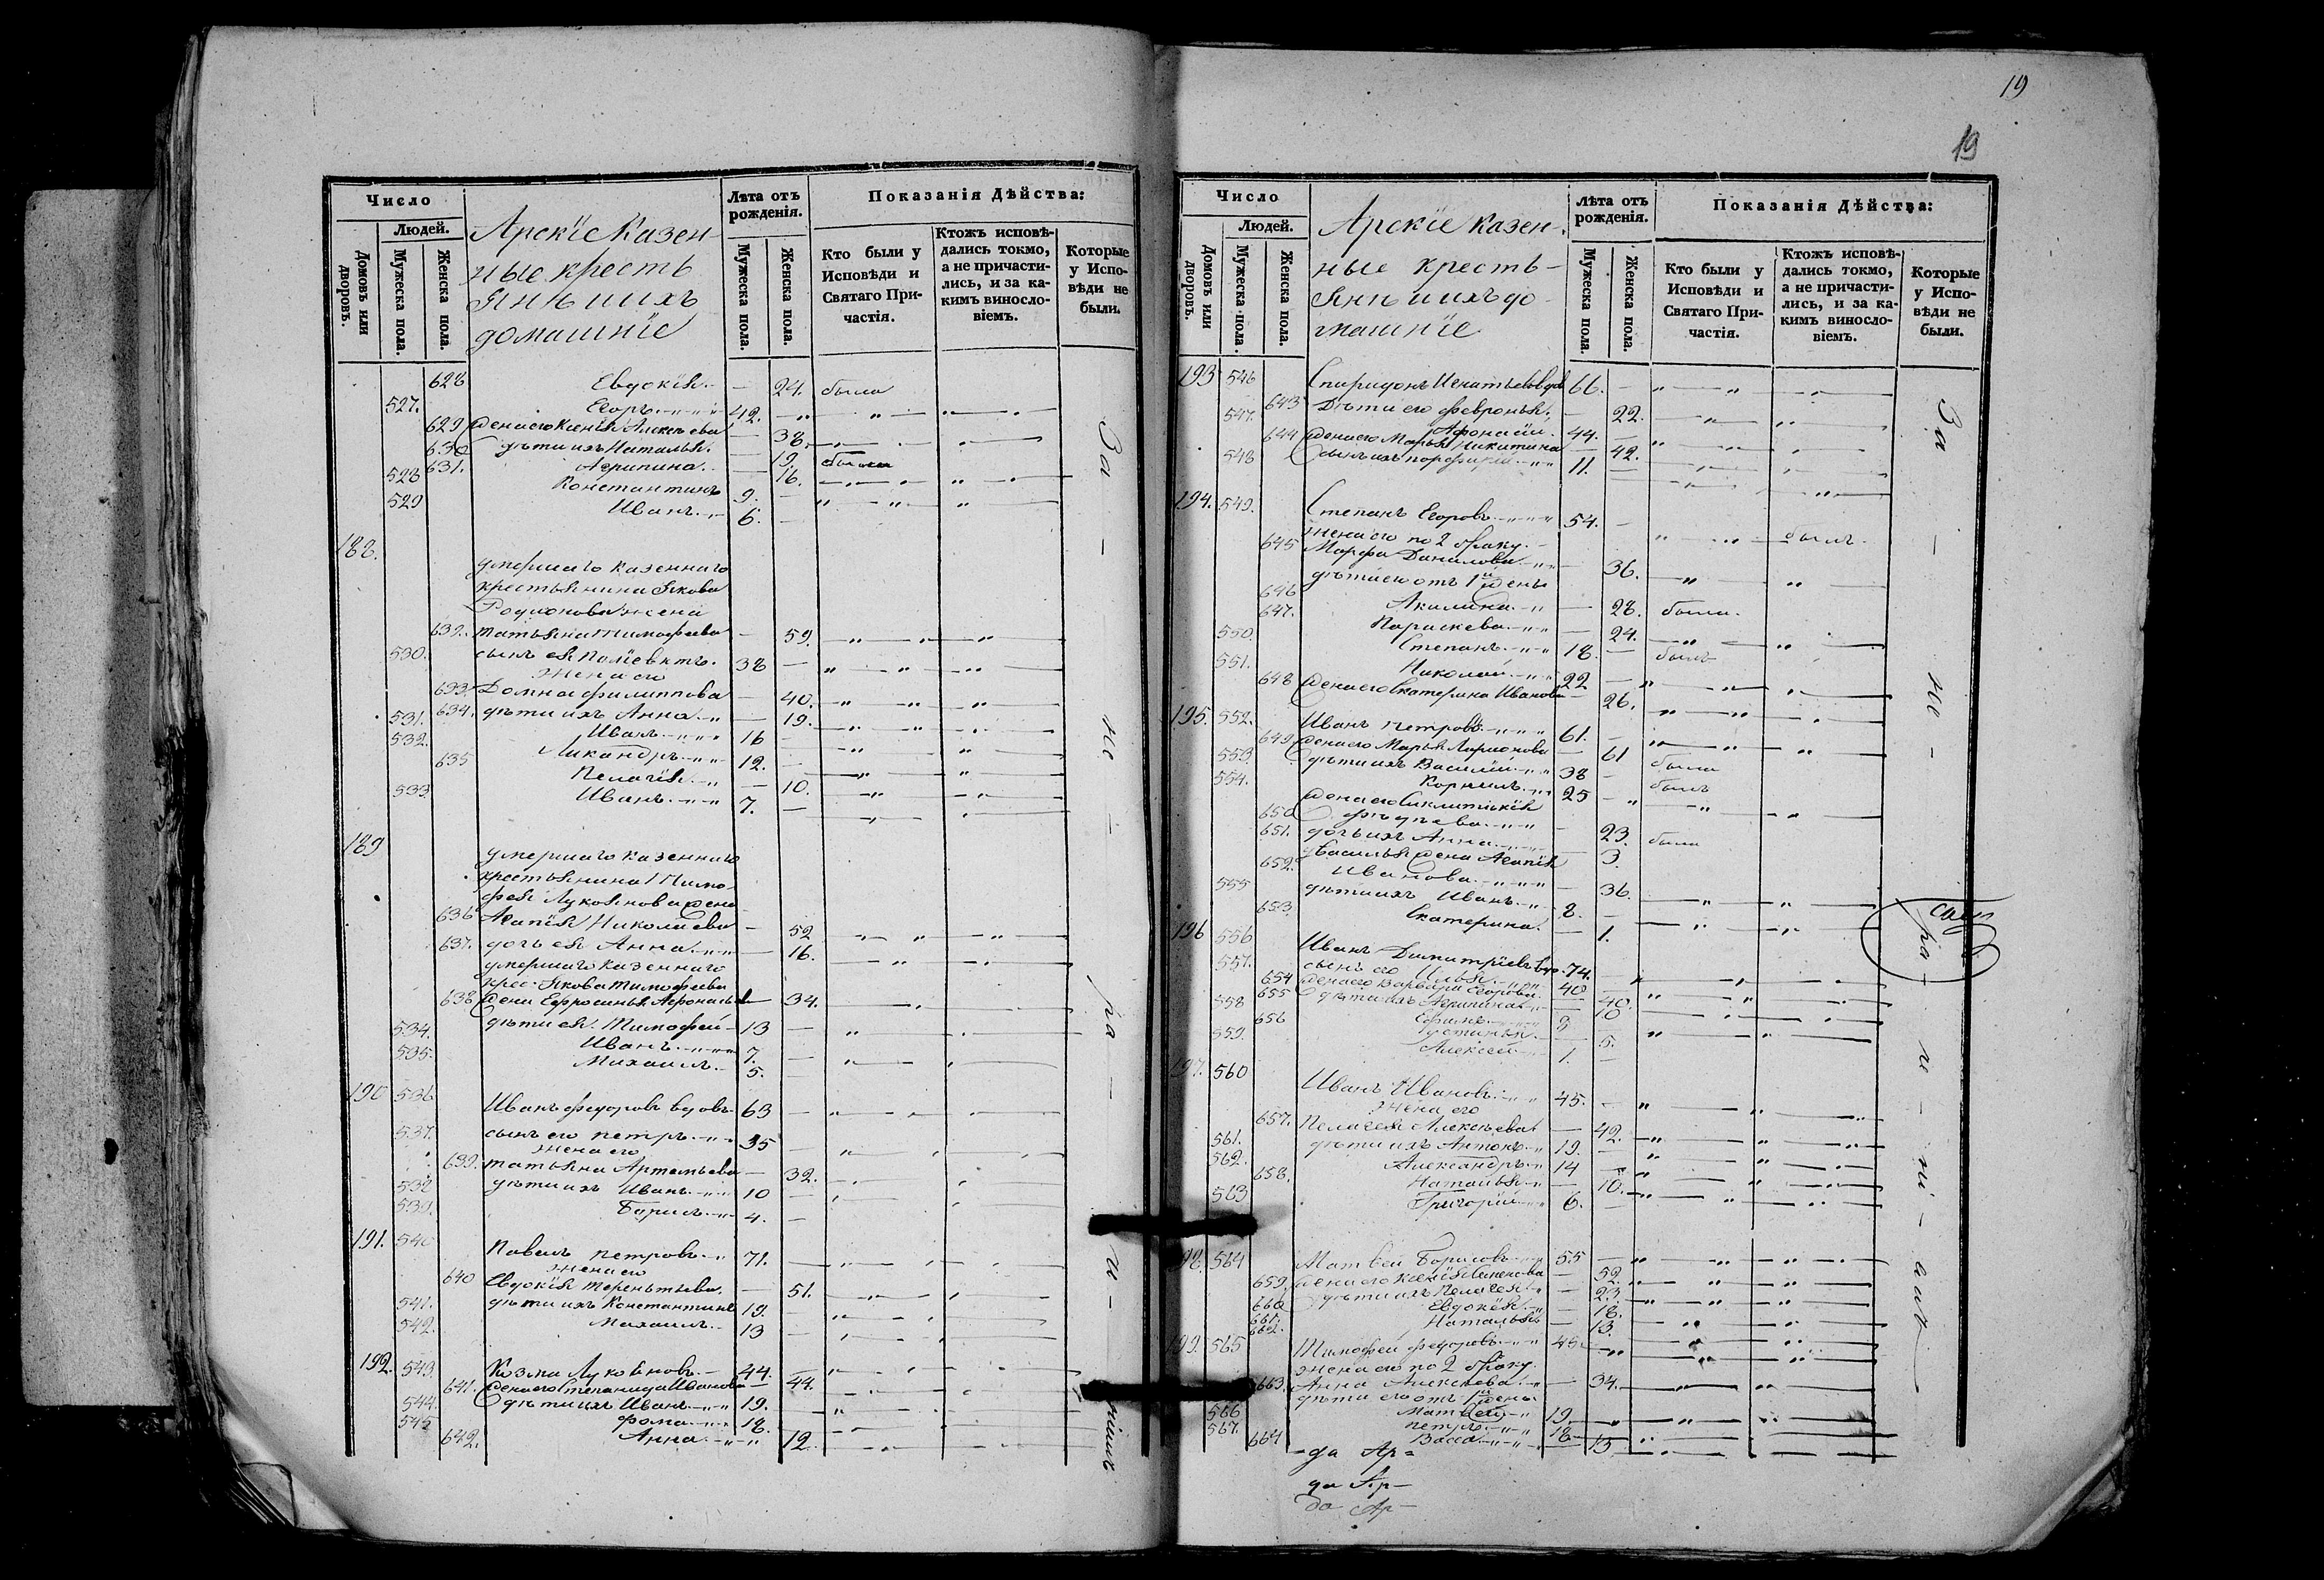 Число
Людей.
Домовъ или дворовъ.
Мужеска пола.
Женска пола.
Арскіе Казен-
ные кресть
янѣ и ихъ
домашніе
Лѣта отъ рожденія.
Мужеска пола.
Женска пола.
Показанія Дѣйства:
Кто были у Исповѣди и Святаго При- частія.
Ктожъ исповѣ- дались токмо, а не причасти- лись, и за ка- кимъ виносло- віемъ.
Которые у Испо- вѣди не были.
628 Евдокія 24. была
527. Егоръ 42.
629 жена его Ксенія Алексѣева 38.
630 дѣти ихъ Наталья 19. была
631. Агрипина 16.
528 Константинъ 9.
529 Иванъ 6.
188.
умершаго казеннаго
крестьянина Якова
Родионова жена
632. Татьяна Тимофѣева 59.
530. сынъ ея Полиевктъ 38
жена его
633. Домна Филиппова 40.
634. дѣти ихъ Анна 19.
531. Иванъ 16
532. Никандръ 12.
635 Пелагія 10.
533 Иванъ 7.
189
умершаго казеннаго
крестьянина Тимо-
фея Лукоянова жена
636 Агапія Николаева 52
637. дочь ея Анна 16.
умершаго казеннаго
крес. Якова Тимофеева
638 жена Ефросинья Афонасьева 34.
534. дѣти ея Тимофей 13
535. Иванъ 7.
Михаилъ 5.
190 536 Иванъ Федоровъ вдовъ 63
537. сынъ его Петръ 35
жена его
639. Татьяна Артемьева 32.
538 дѣти ихъ Иванъ 10
539. Борисъ 4.
191. 540 Павелъ Петровъ 71.
жена его
640 Евдокія Терентьева 51.
541. дѣти ихъ Константинъ 19.
542. Михаилъ 13
192 543. Козма Лукояновъ 44.
641. жена его Степанида Иванова 44.
544. дѣти ихъ Иванъ 19.
545 Фома 18.
642. Анна 12
За - не - ра - и - ніемъ
19
19
Число
Людей.
Домовъ или дворовъ.
Мужеска пола.
Женска пола.
Арскіе казен-
ные кресть-
янѣ и ихъ до-
машніе
Лѣта отъ рожденія.
Мужеска пола.
Женска пола.
Показанія Дѣйства:
Кто были у Исповѣди и Святаго При- частія.
Ктожъ исповѣ- дались токмо, а не причасти- лись, и за ка- кимъ виносло- віемъ.
Которые у Испо- вѣди не были.
193 546 Спиридонъ Игнатьевъ вдов 66.
643 Дѣти его Февронья 22.
547. Афонасій 44.
644 жена его Марья Никитина 42.
548 сынъ ихъ Порфирій 11.
194. 549. Степанъ Егоровъ 54. былъ
жена его по 2 браку
645 Марфа Данилова 36.
дѣти его отъ 1й жены
646 Акилина 28. была
647. Параскева 24.
550. Степанъ 18. былъ
551. Николай 22
648 жена его Екатерина Иванова 26.
195. 552. Иванъ Петровъ 61.
649 жена его Марья Ларионова 61
553. дѣти ихъ Василій 38 была
554. Корнилъ 25 былъ
жена его Синклитикія
650 Фадѣева 23.
651. дочь ихъ Анна 3. была
652. у Василья жена Агапія
Иванова 36.
555 дѣти ихъ Иванъ 8.
653 Екатерина 1.
196 556 Иванъ Димитріевъ вдо. 74.
557. сынъ его Илья 40
654 жена его Варвара Егорова 40.
655 дѣти ихъ Агрипина 10
558 Ефимъ 8
656 Устинья 5.
559. Алексей 1.
197. 560 Иванъ Ивановъ 45.
жена его
657. Пелагея Алексѣева 42.
561. дѣти ихъ Антонъ 19.
562. Александръ 14
658. Наталья 10.
563 Григорій 6.
198. 564 Матвей Борисовъ 55
659. жена его Ксенія Семенова 52.
660 дѣти ихъ Пелагея 23.
661. Евдокія 18.
662. Наталья 13.
199. 565 Тимофей Федоровъ 45
жена его по 2 браку
663. Анна Алексѣева 34.
дѣти его отъ 1й жены
566 Матвей 19.
567. Петръ 18
664 Васса 13
За - не - ра - и - ні - емъ
да Ар=
да Ар-
да Ар-